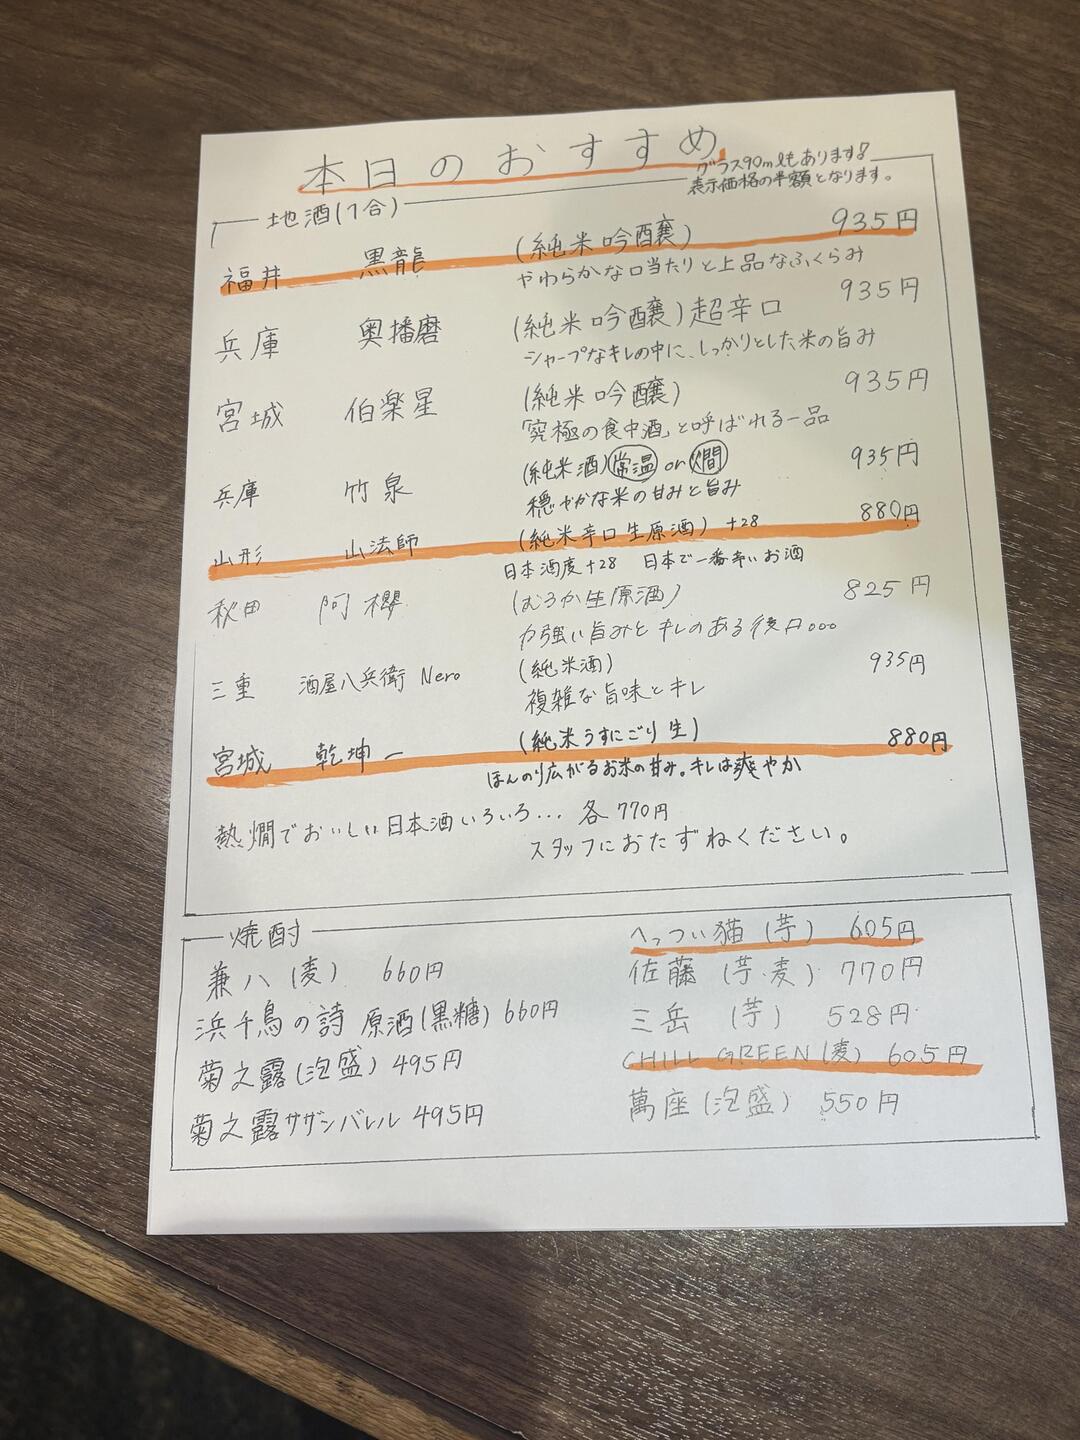 本日のおすすめ
グラス90mlもあります♪
表示価格の半額となります。
地酒(1合)
福井 黒龍 (純米吟醸) 935円
やわらかな口当たりと上品なふくらみ
兵庫 奥播磨 (純米吟醸)超辛口 935円
シャープなキレの中に、しっかりとした米の旨み
宮城 伯楽星 (純米吟醸) 935円
「究極の食中酒」と呼ばれる一品
兵庫 竹泉 (純米酒)常温or燗 935円
穏やかな米の甘みと旨み
山形 山法師 (純米辛口生原酒) +28 880円
日本酒度+28 日本で一番辛いお酒
秋田 阿櫻 (むろか生原酒) 825円
力強い旨みとキレのある後口。。。
三重 酒屋八兵衛 Nero (純米酒) 935円
複雑な旨味とキレ
宮城 乾坤一 (純米うすにごり生) 880円
ほんのり広がるお米の甘み。キレは爽やか
熱燗でおいしい日本酒いろいろ... 各770円
スタッフにおたずねください。
焼酎
兼八(麦) 660円
浜千鳥の詩 原酒(黒糖) 660円
菊之露(泡盛) 495円
菊之露サザンバレル 495円
へっつい猫(芋) 605円
佐藤(芋・麦) 770円
三岳(芋) 528円
CHILL GREEN(麦) 605円
萬座(泡盛) 550円